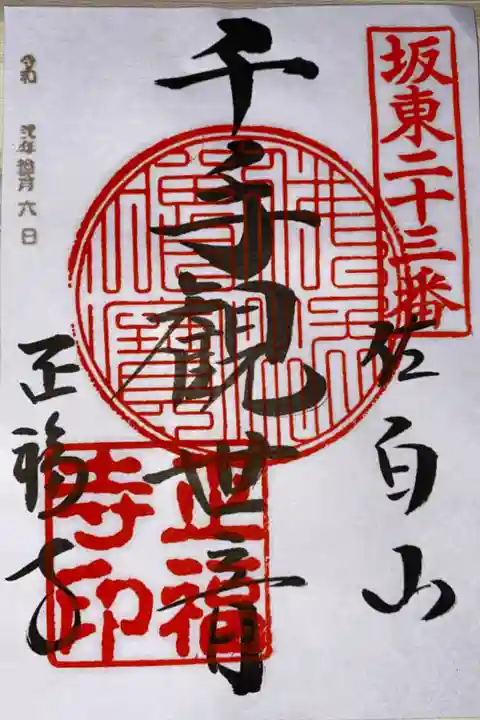 坂東二十三番
佐白山
千手観世音
正福寺
正福
寺印
令和 弐年拾月六日